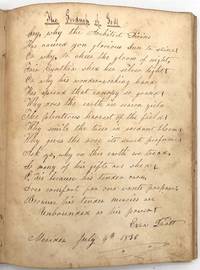 The Goodness of God
Say, why the Architect Divine
Has caused yon glorious sun to shine?
Or why, to cheer the gloom of night,
Fair Cynthia shed her silver light?
Or why his wonderworking hands
Has spread that canopy so grand?
Why does the earth in season yield
The plenteous harvest of the field?
Why smile the trees in verdant bloom
Why gives the rose its sweet perfume
Ask ye, why on this earth we tread,
So many of his gifts are shed,
'Tis because his tender
love constant for our wants prepares
Because his tender mercies are
Unbounded as his power
Ezra
July 9th 1838